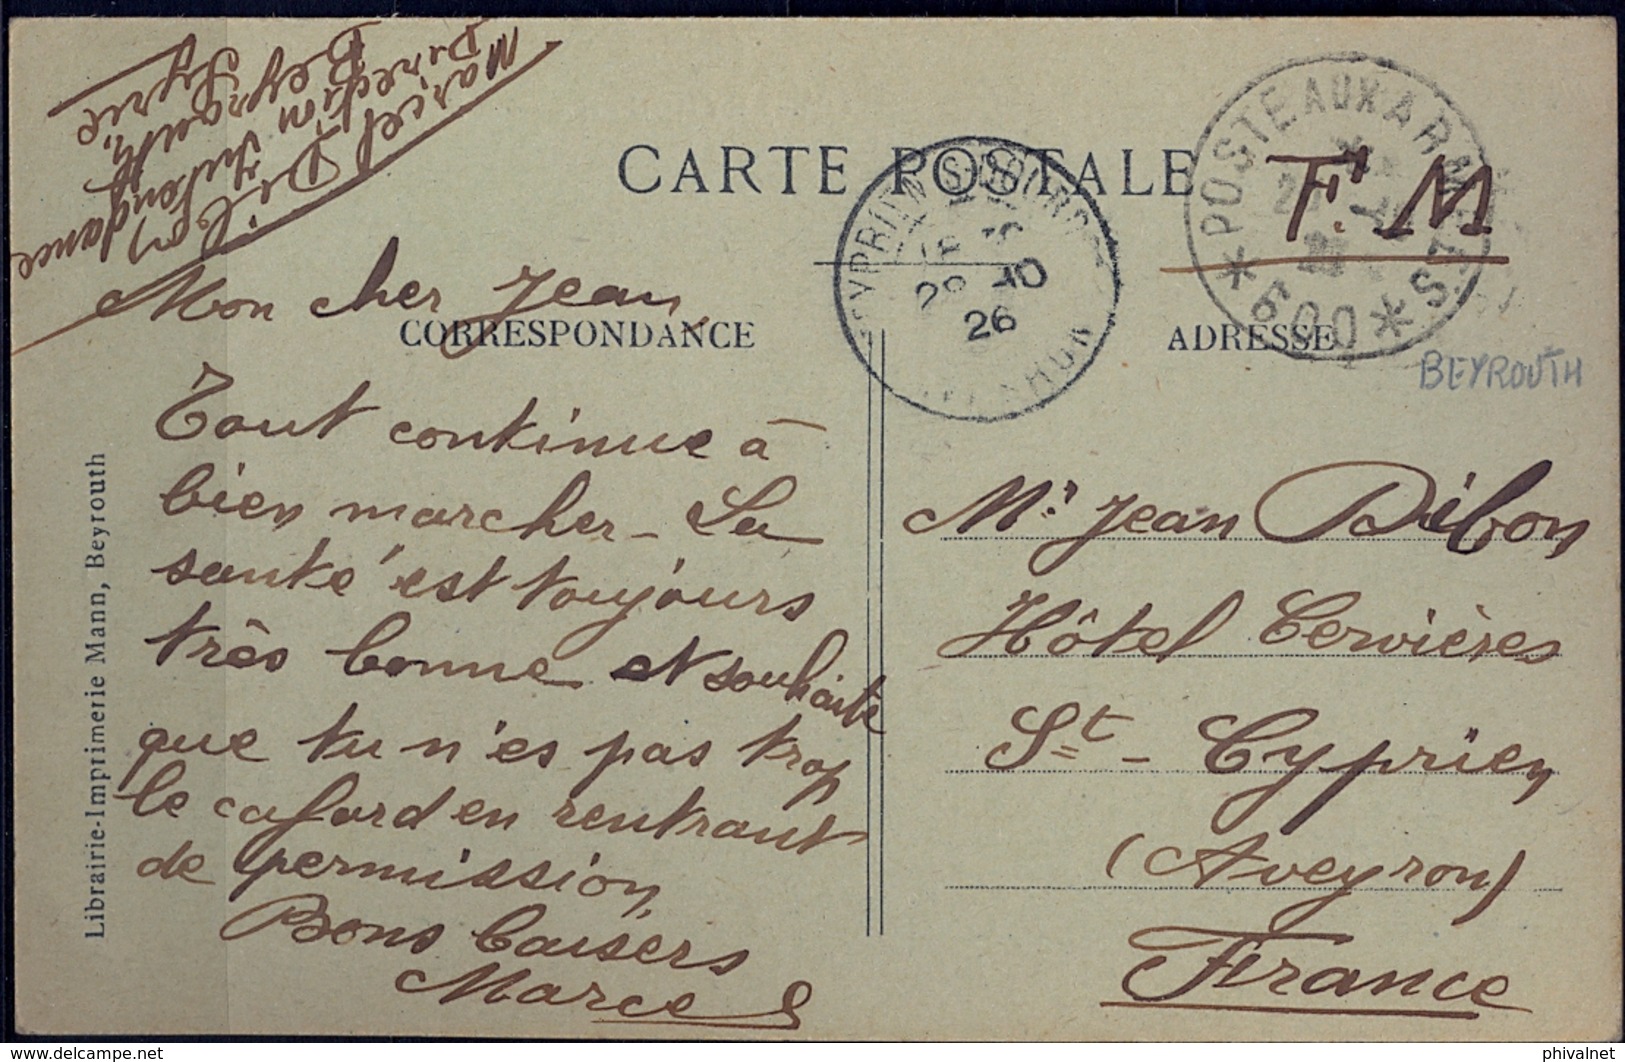 Marcel Dibon
Direction Intendance
Beyrouth.
Syrie
CARTE POSTALE
F. M
POSTE AUX ARMÉES
* 600 *
28 10
26
BEYROUTH
CORRESPONDANCE
ADRESSE
Mon cher Jean
Tout continue à
bien marcher - La
santé est toujours
très bonne et souhaite
que tu n'es pas trop
le cafard en rentrant
de permission
Bons baisers
Marcel
Mr Jean Dibon
Hôtel Cervières
St - Cyprien
(Aveyron)
France
Librairie-Imprimerie Mann, Beyrouth
delcampe.net
phivalnet